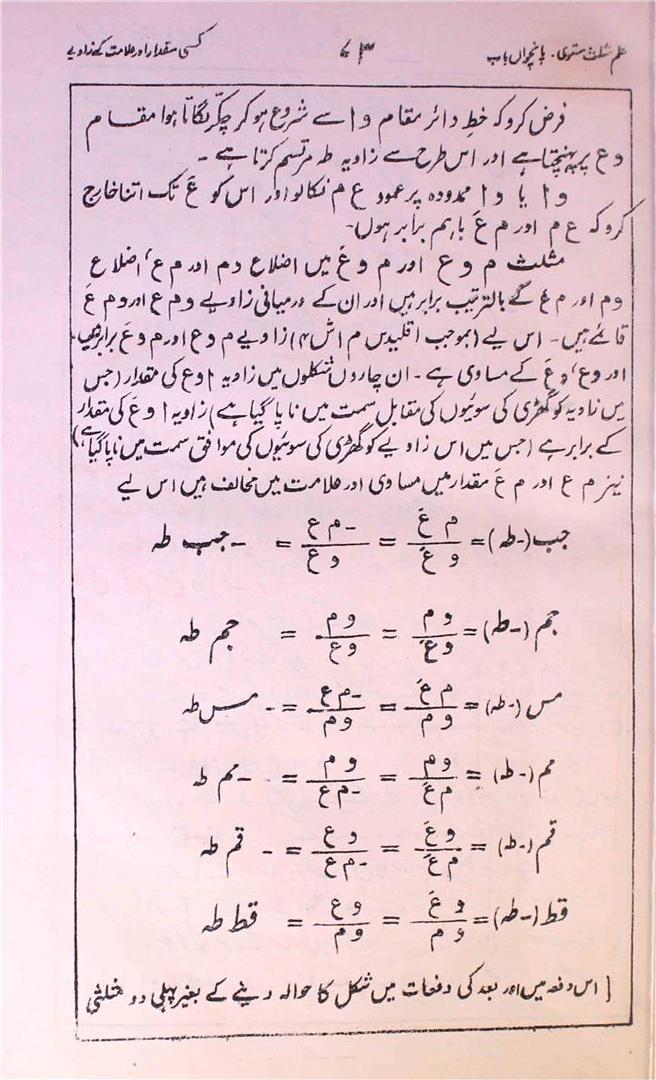 علم مثلث مستوی۔ پانچواں باب ۷۳ کسی مقدار اور علامت کے زاویے
فرض کرو کہ خطِ دائر مقام و ا سے شروع ہو کر چکّر لگاتا ہوا مقام
و ع پر پہنچتا ہے اور اس طرح سے زاویہ طہ مرتسم کرتا ہے ۔
و ا یا و ا ممدودہ پر عمود ع م نکالو اور اس کو عَ تک اتنا خارج
کرو کہ ع م اور م عَ باہم برابر ہوں۔
مثلث م و ع اور م و عَ میں اضلاع و م اور م ع، اضلاع
و م اور م عَ کے بالترتیب برابر ہیں اور ان کے درمیانی زاویے و م ع اور و م عَ
قائمے ہیں۔ اس لیے (بموجب اقلیدس م ا ش ۴) زاویے م و ع اور م و عَ برابر ہیں،
اور و ع، و عَ کے مساوی ہے ۔ ان چاروں شکلوں میں زاویہ ا و ع کی مقدار (جس
میں زاویہ کو گھڑی کی سوئیوں کی مقابل سمت میں ناپا گیا ہے) زاویہ ا و عَ کی مقدار
کے برابر ہے (جس میں اس زاویے کو گھڑی کی سوئیوں کی موافق سمت میں ناپا گیا ہے)
نیز م ع اور م عَ مقدار میں مساوی اور علامت میں مخالف ہیں اس لیے
جب (-طہ) = م عَ / و عَ = -م ع / و ع = -جب طہ
جم (-طہ) = و م / و عَ = و م / و ع = جم طہ
مس (-طہ) = م عَ / و م = -م ع / و م = -مس طہ
مم (-طہ) = و م / م عَ = و م / -م ع = -مم طہ
قم (-طہ) = و عَ / م عَ = و ع / -م ع = -قم طہ
قط (-طہ) = و عَ / و م = و ع / و م = قط طہ
[ اس دفعہ میں اور بعد کی دفعات میں شکل کا حوالہ دینے کے بغیر پہلی دو مثلثی